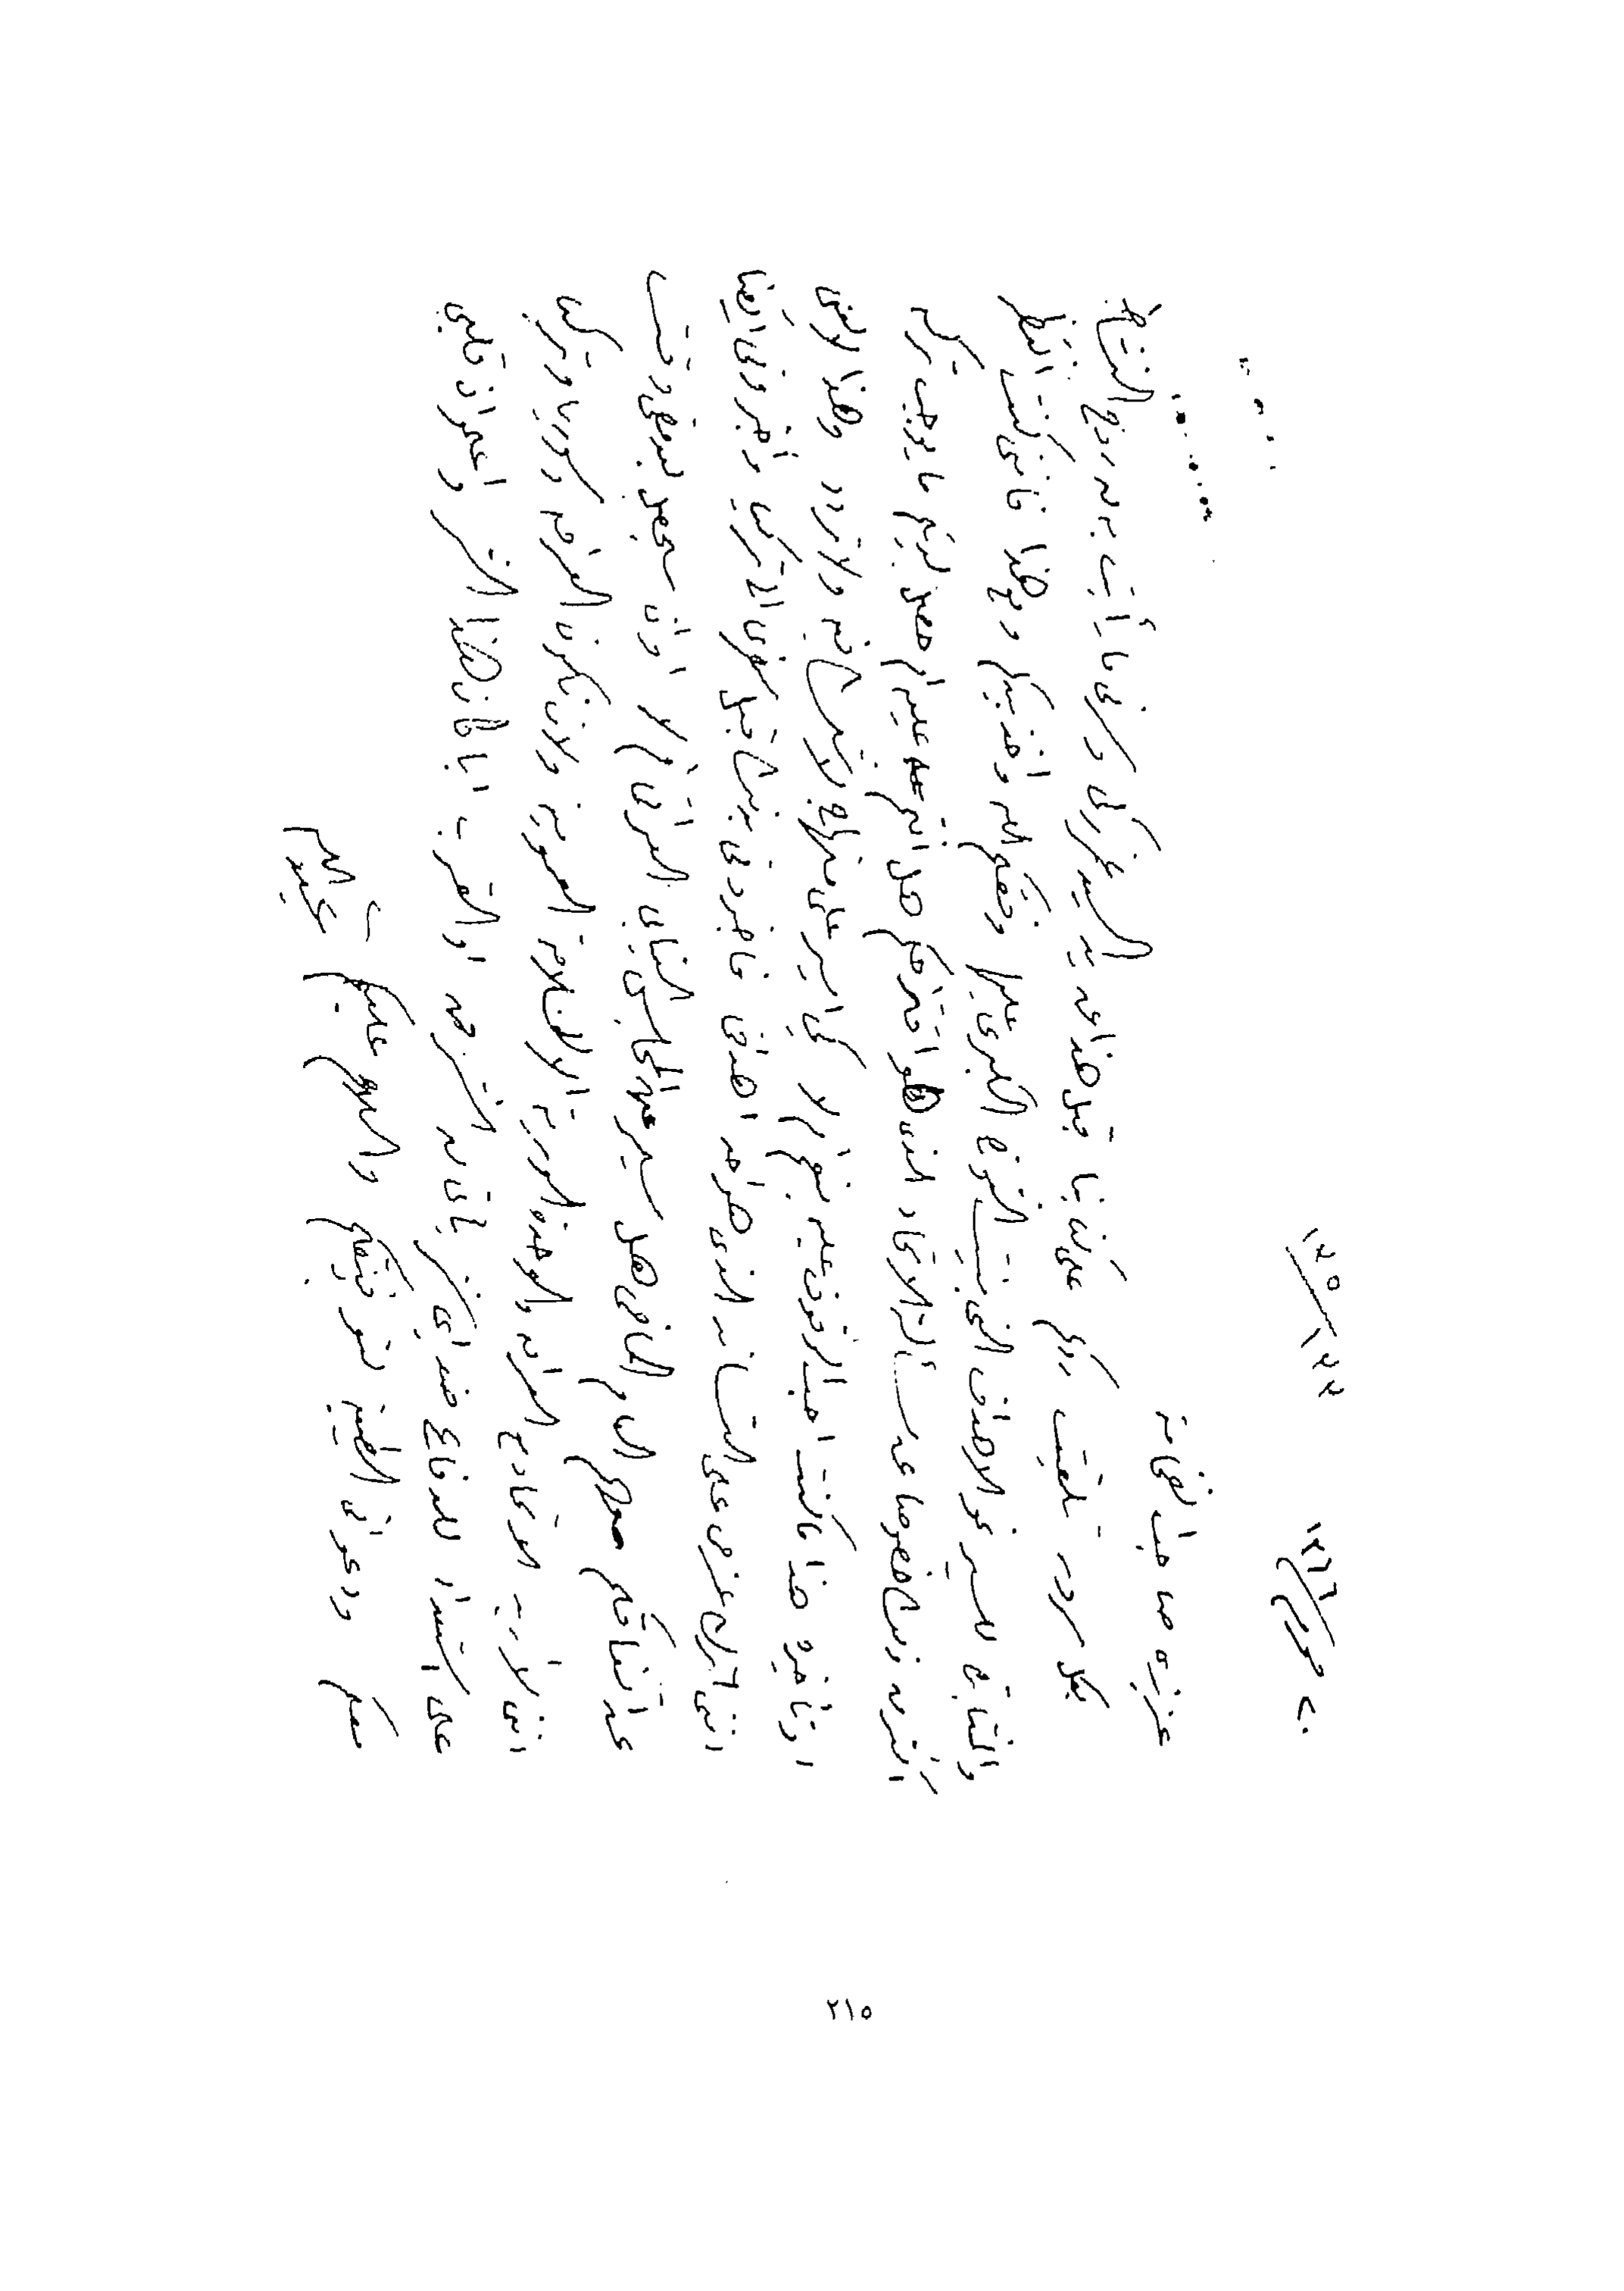 ٢٠ محرم ١٣٦٦
١٤/١٢/٥
عزيزي صاحب الفخامة
بكل سرور تلقيت ردكم على كتابنا قبل هذا عن يد السيد بكري وسرني ما رأيت به من روح النشاط
والمتابعة للسير نحو الاهداف التي بنيت النهضة الكبرى عليها وفقكم الله وأخذ بيدكم ومع هذا فانني كنت انتظر
أكثر من ذلك خصوصا عن مسألة الاتحاد الذي هو اقتراحكم هل انتم عليه أم حصل لديكم ما يوجب تركه
او تأخيره هذا ما كنت احب الوقوف عليه نعم أم لا لكي اسير على منهاج لا شك فيه ولا تردد وهذا لا يعني
انني اترك غرض على التساند الذي هو احد اهدافي فاخبروني بذلك قبل سفري الى تركيا وأخبروني ايضا
عن اتفاقكم معهم العام الماضي هل سيعرض للمجلس النيابي العراقي أم لا وان سيحصل ففي وقت
انني لا اريد الاتحاد مع العراق والوحدة السورية الا لسلامة العروبة ولان تكون العراق وسوريا وتركيا
على استعداد للدفاع ضد اي خطر يأتي من الشرق او الغرب ابان هذا الشر واخواني قلبي
معكم ودعواتي الطيبة لتوفيقكم والسلام عليكم
عبدالله
٢١٥